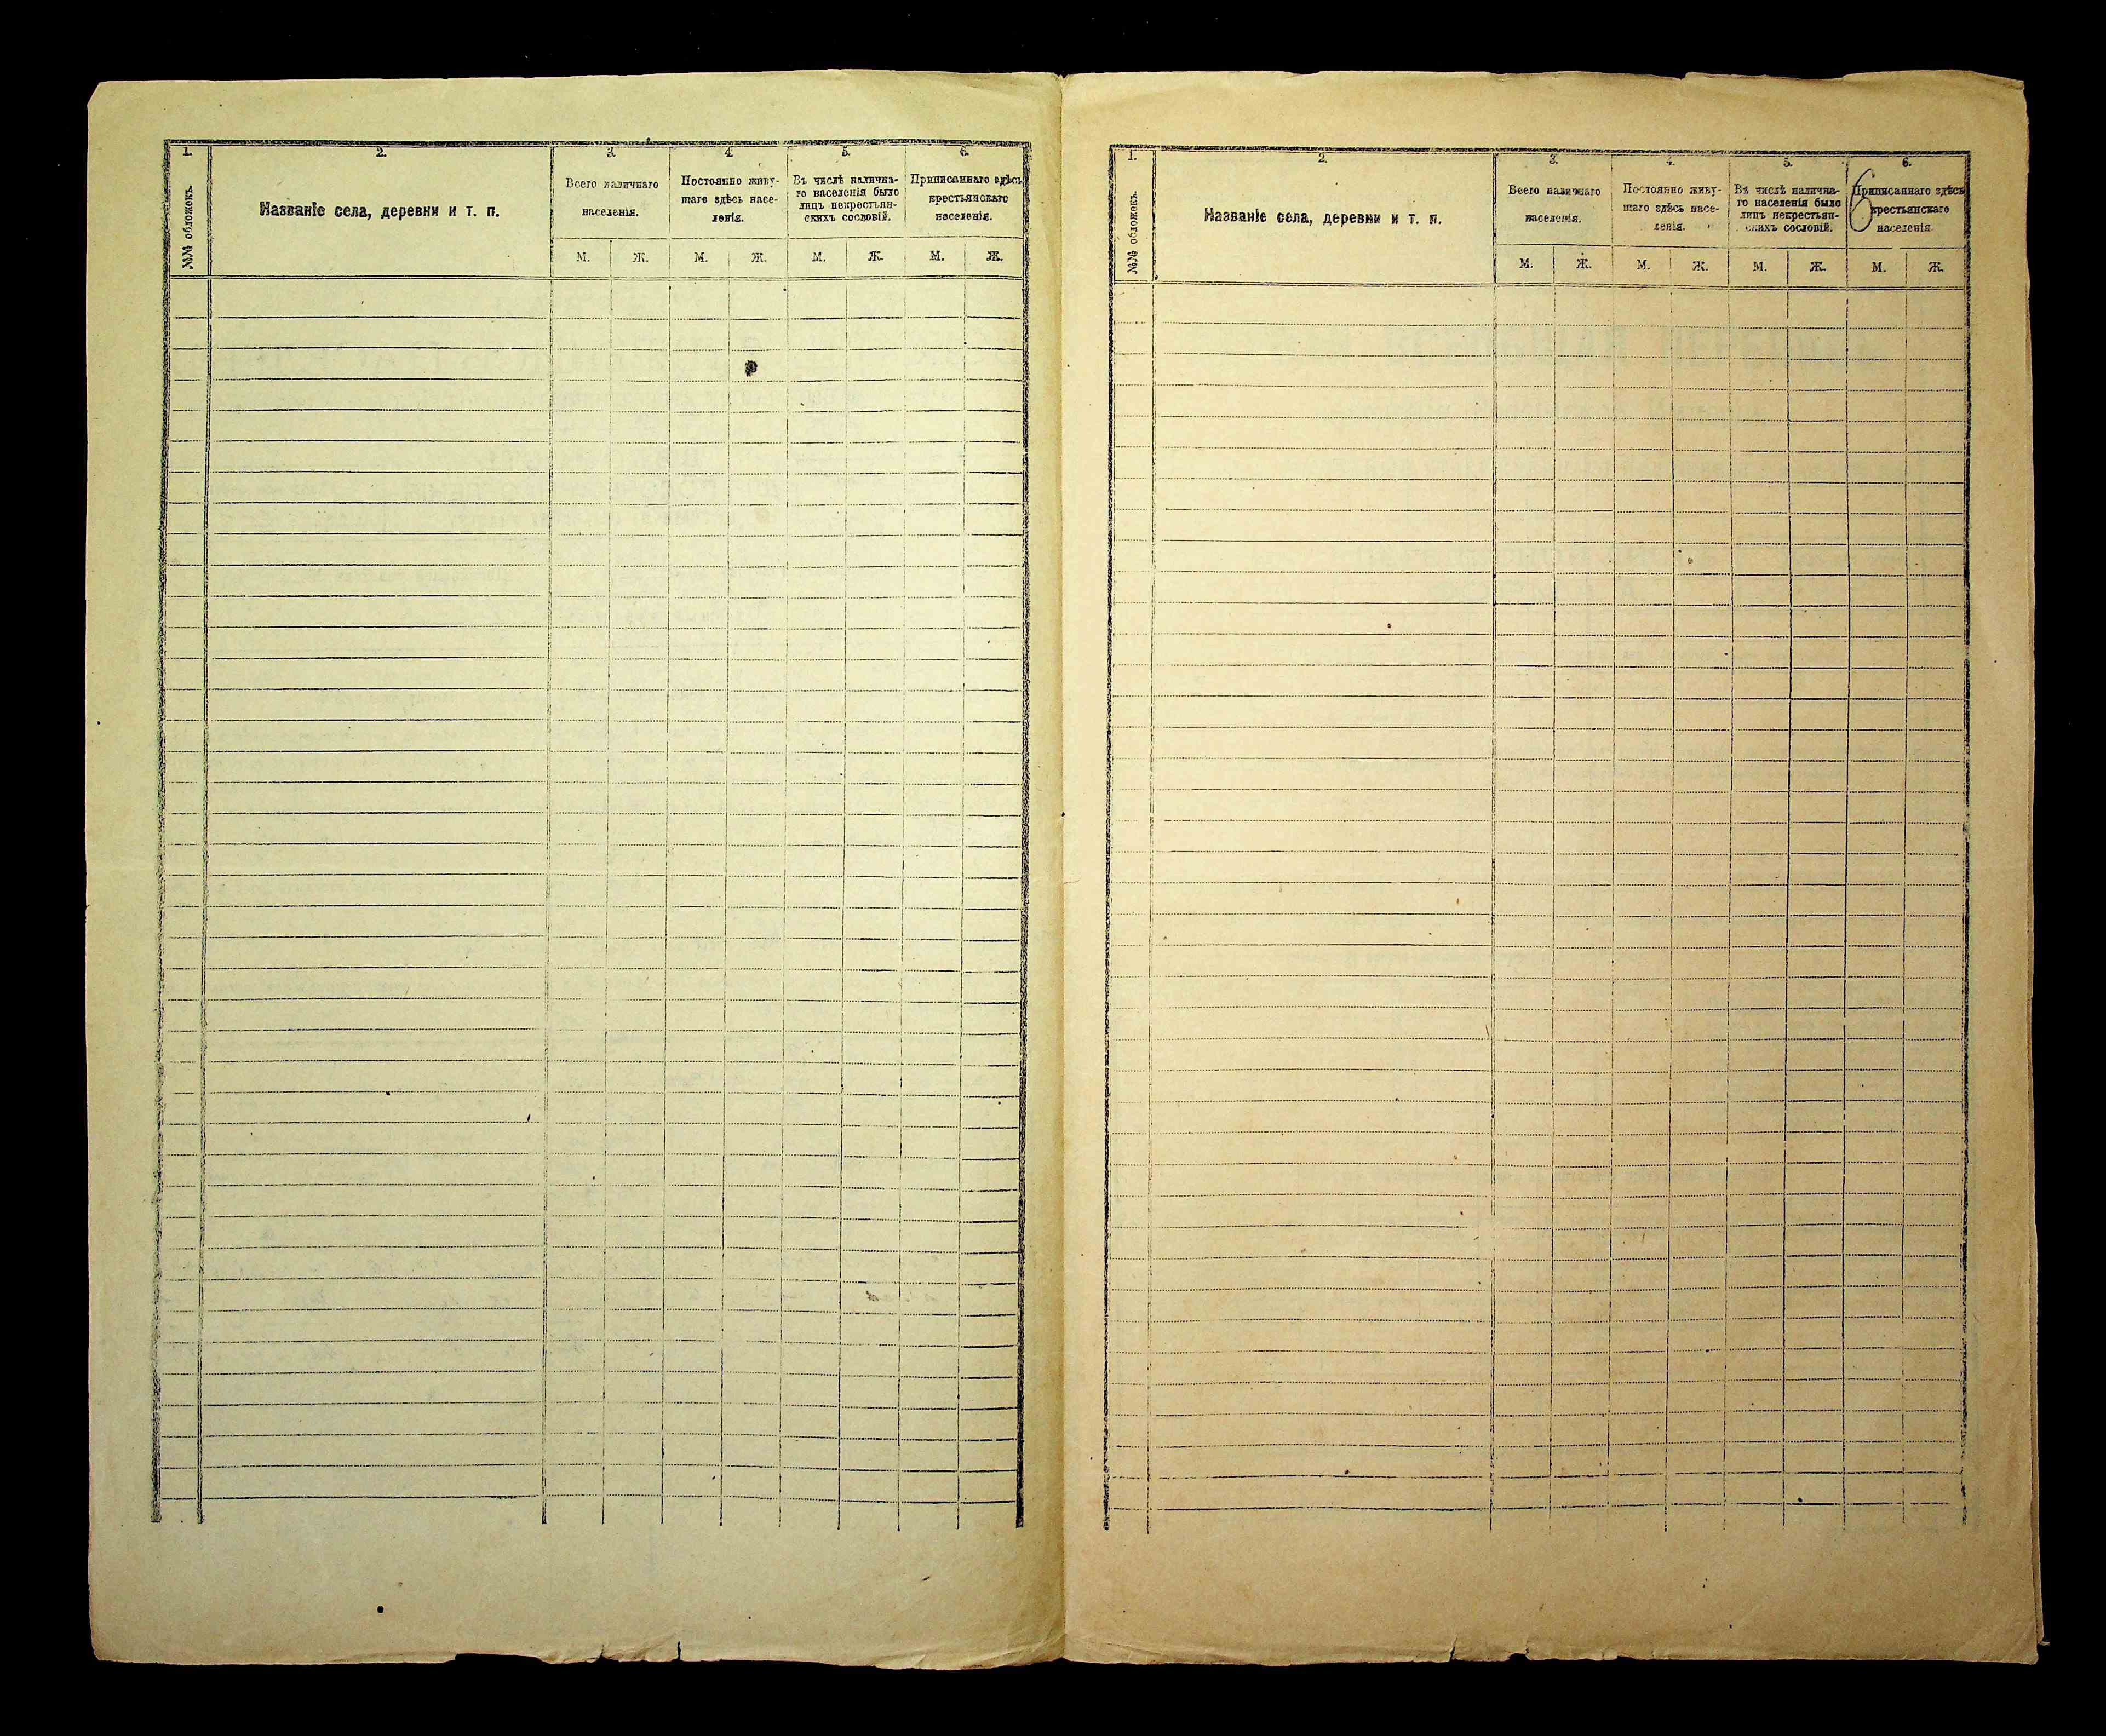 1. 2. 3. 4. 5. 6.
№№ обложекъ.
Названіе села, деревни и т. п.
Всего наличнаго
населенія.
Постоянно живу-
щаго здѣсь насе-
ленія.
Въ числѣ налична-
го населенія было
лицъ некрестьян-
скихъ сословій.
Приписаннаго здѣсь
крестьянскаго
населенія.
М. Ж. М. Ж. М. Ж. М. Ж.
1. 2. 3. 4. 5. 6.
№№ обложекъ.
Названіе села, деревни и т. п.
Всего наличнаго
населенія.
Постоянно живу-
щаго здѣсь насе-
ленія.
Въ числѣ налична-
го населенія было
лицъ некрестьян-
скихъ сословій.
Приписаннаго здѣсь
крестьянскаго
населенія.
6
М. Ж. М. Ж. М. Ж. М. Ж.